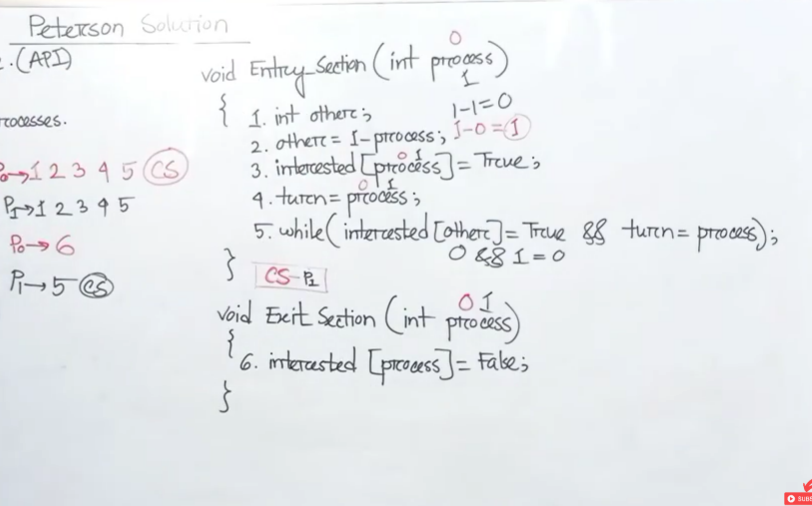 Peterson Solution
2.(API)
rocesses.
P₀→1 2 3 4 5 CS
P₁→1 2 3 4 5
P₀→6
P₁→5 CS
0
void Entry_Section (int process)
1
{ 1. int other;
1-1=0
2. other = 1-process; 1-0=1
0 1
3. interested [process]= True;
0 1
4. turn= process;
5. while(interested [other]= True && turn= process);
0 && 1=0
}
CS-P₁
0 1
void Exit Section (int process)
{
6. interested [process]= False;
}
SUBS